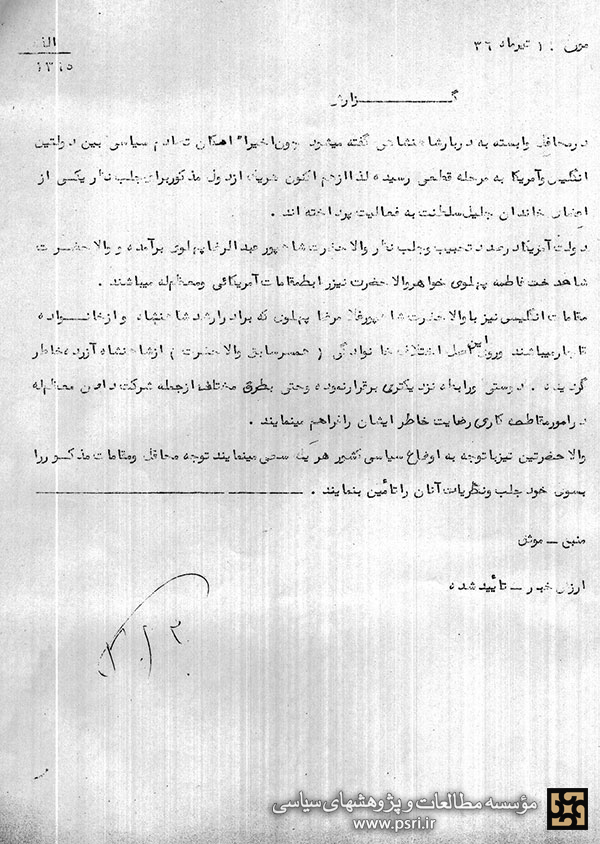 مورخ : ۱ تیرماه ۳۶
الف
۱۳۱۵
گـــــــزارش
در محافل وابسته به دربار شاهنشاهی گفته میشود چون اخیراً امکان تصادم سیاسی بین دولتین
انگلیس و آمریکا به مرحله قطعی رسیده لذا از هم اکنون هریک از دول مذکور برای جلب نظر یکی از
اعضای خاندان جلیل سلطنت به فعالیت پرداخته اند .
دولت آمریکا درصدد تحبیب و جلب نظر والا حضرت شاهپور عبدالرضا پهلوی برآمده و والا حضرت
شاهدخت فاطمه پهلوی خواهر والا حضرت نیز رابط مقامات آمریکائی و معظم له میباشند .
مقامات انگلیسی نیز با والا حضرت شاهپور غلامرضا پهلوی که برادر ارشد شاهنشاه و از خانـواده
قاجار میباشند و روی اصل اختلاف خانوادگی ( همسر سابق والا حضرت ) از شاهنشاه آزرده خاطر
گردیده . دوستی و رابطه نزدیکتری برقرار نموده و حتی بطرق مختلف از جمله شرکت دادن معظم له
در امور مقاطعه کاری رضایت خاطر ایشان را فراهم مینمایند .
والا حضرتین نیز با توجه به اوضاع سیاسی کشور هر یک سعی مینمایند توجه محافل و مقامات مذکور را
بسوی خود جلب و نظریات آنان را تأمین بنمایند .
منبع ـ موثق
ارزش خبر ـ تأیید شده
مؤسسه مطالعات و پژوهشهای سیاسی
www.psri.ir